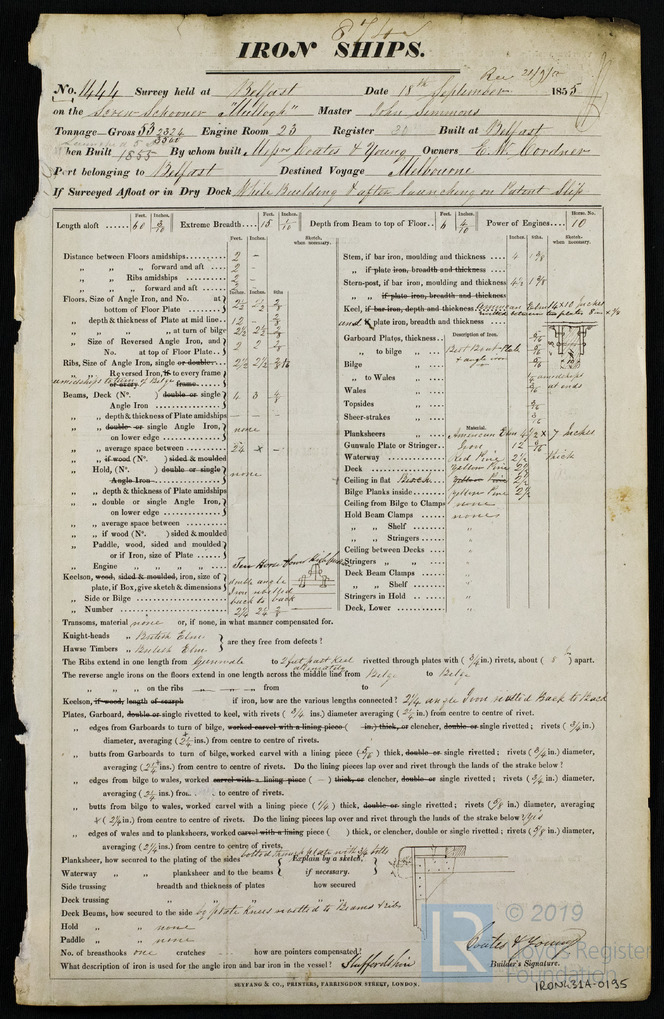 IRON SHIPS.
Rec 21/9/55
No. 444 Survey held at Belfast Date 18th September 1855
on the Screw Schooner "Mullogh" Master John Simmons
Tonnage—Gross Engine Room 23 Register 30 Built at Belfast
Launched
When Built 1855 By whom built Messrs Coates & Young Owners E. W. Cordner
Port belonging to Belfast Destined Voyage Melbourne
If Surveyed Afloat or in Dry Dock While Building & after launching on Patent Slip
Length aloft Feet. 60 Inches. 3/10 Extreme Breadth Feet. 15 Inches. 1/10 Depth from Beam to top of Floor Feet. 6 Inches. 4/10 Power of Engines Horse. No. 10
Feet. Inches. Sketch, when necessary.
Distance between Floors amidships 2 –
„ „ forward and aft 2 –
„ Ribs amidships 2 –
„ „ forward and aft 2
Feet. Inches. 8ths
Floors, Size of Angle Iron, and No. at bottom of Floor Plate
„ depth & thickness of Plate at mid line 12
„ „ at turn of bilge
„ Size of Reversed Angle Iron, and No. at top of Floor Plate
Ribs, Size of Angle Iron, single or double
„ Reversed Iron, if to every frame
or every frame
amidships to turn of Bilge
Beams, Deck (No. ) double or single Angle Iron 4 3
„ „ depth & thickness of Plate amidships – – –
„ „ double or single Angle Iron, on lower edge none
„ „ average space between
„ „ if wood (No. ) sided & moulded
„ Hold, (No. ) double or single Angle Iron none
„ „ depth & thickness of Plate amidships
„ „ double or single Angle Iron, on lower edge
„ „ average space between
„ „ if wood (No. ) sided & moulded
„ Paddle, wood, sided and moulded or if Iron, size of Plate
„ Engine „ „ „ „
Keelson, wood, sided & moulded, iron, size of plate, if Box, give sketch & dimensions double angle Iron rivetted back to back
„ Side or Bilge
„ Number
Inches. 8ths. Sketch, when necessary.
Stem, if bar iron, moulding and thickness 4
„ if plate iron, breadth and thickness
Stern-post, if bar iron, moulding and thickness
„ „ if plate iron, breadth and thickness
Keel, if bar iron, depth and thickness American Elm 14 x 10 inches
and if plate iron, breadth and thickness
Description of Iron.
Garboard Plates, thickness
„ to bilge „ Best Boat Plate & angle iron
Bilge „
„ to Wales „ amidships
Wales „ at ends
Topsides „
Sheer-strakes „
Material.
Planksheers American Elm 4 1/2 x 7 Inches
Gunwale Plate or Stringer Iron 12 thick
Waterway Red Pine 2 1/2
Deck Yellow Pine
Ceiling in flat Birch Yellow Pine
Bilge Planks inside Yellow Pine
Ceiling from Bilge to Clamps none
Hold Beam Clamps none
„ „ Shelf
„ „ Stringers
Ceiling between Decks
Stringers „ „
Deck Beam Clamps
„ „ Shelf
Stringers in Hold
Deck, Lower
Transoms, material none or, if none, in what manner compensated for.
Knight-heads „ British Elm
Hawse Timbers „ British Elm
are they free from defects?
The Ribs extend in one length from Gunwale to 2 feet past Keel alternately rivetted through plates with (3/4 in.) rivets, about (8 in.) apart.
The reverse angle irons on the floors extend in one length across the middle line from Bilge to Bilge
„ „ on the ribs „ „ from to
Keelson, if wood, length of scarph if iron, how are the various lengths connected? 2 1/4 angle Iron rivetted Back to Back
Plates, Garboard, double or single rivetted to keel, with rivets (3/4 ins.) diameter averaging (2 1/4 in.) from centre to centre of rivet.
„ edges from Garboards to turn of bilge, worked carvel with a lining piece ( in.) thick, or clencher, double or single rivetted; rivets (3/4 in.) diameter, averaging (2 1/4 ins.) from centre to centre of rivets.
„ butts from Garboards to turn of bilge, worked carvel with a lining piece (5/16) thick, double or single rivetted; rivets (3/4 in.) diameter, averaging (2 1/4 ins.) from centre to centre of rivets. Do the lining pieces lap over and rivet through the lands of the strake below?
„ edges from bilge to wales, worked carvel with a lining piece ( – ) thick, or clencher, double or single rivetted; rivets (3/4 in.) diameter, averaging (2 1/4 ins.) from to centre of rivets.
„ butts from bilge to wales, worked carvel with a lining piece (1/4) thick, double or single rivetted; rivets (5/8 in.) diameter, averaging (2 1/4 in.) from centre to centre of rivets. Do the lining pieces lap over and rivet through the lands of the strake below? Yes
„ edges of wales and to planksheers, worked carvel with a lining piece ( ) thick, or clencher, double or single rivetted; rivets (5/8 in.) diameter, averaging (2 1/4 ins.) from centre to centre of rivets.
Planksheer, how secured to the plating of the sides bolted through plate with 3/4 bolts Explain by a sketch, if necessary.
Waterway „ „ planksheer and to the beams
Side trussing breadth and thickness of plates how secured
Deck trussing „ „ „ „
Deck Beams, how secured to the side by plate knees rivetted to Beams & ribs
Hold „ „ none
Paddle „ „ none
No. of breasthooks one crutches how are pointers compensated?
What description of iron is used for the angle iron and bar iron in the vessel? Staffordshire
Coates & Young
Builder's Signature.
SEYFANG & CO., PRINTERS, FARRINGDON STREET, LONDON.
IRON431A-0195
LR
© 2019
Lloyd's Register
Foundation